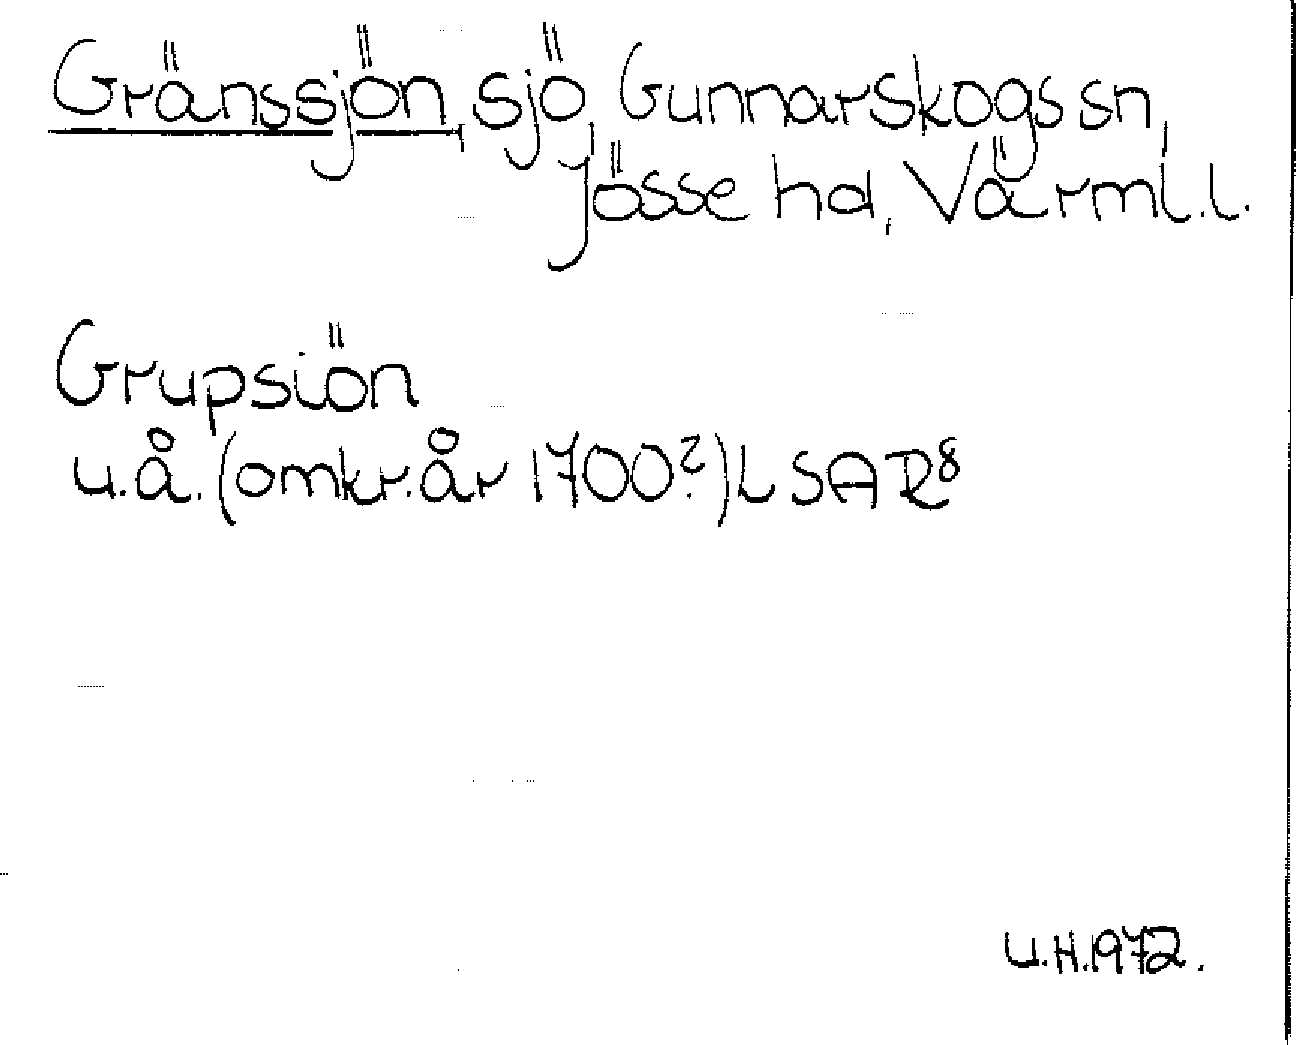 Gränssjön, sjö, Gunnarskogs sn,
Jösse hd, Värml. l.
Grupsiön
u.å. (omkr. år 1700?) LSA R8
U.H. 1972.